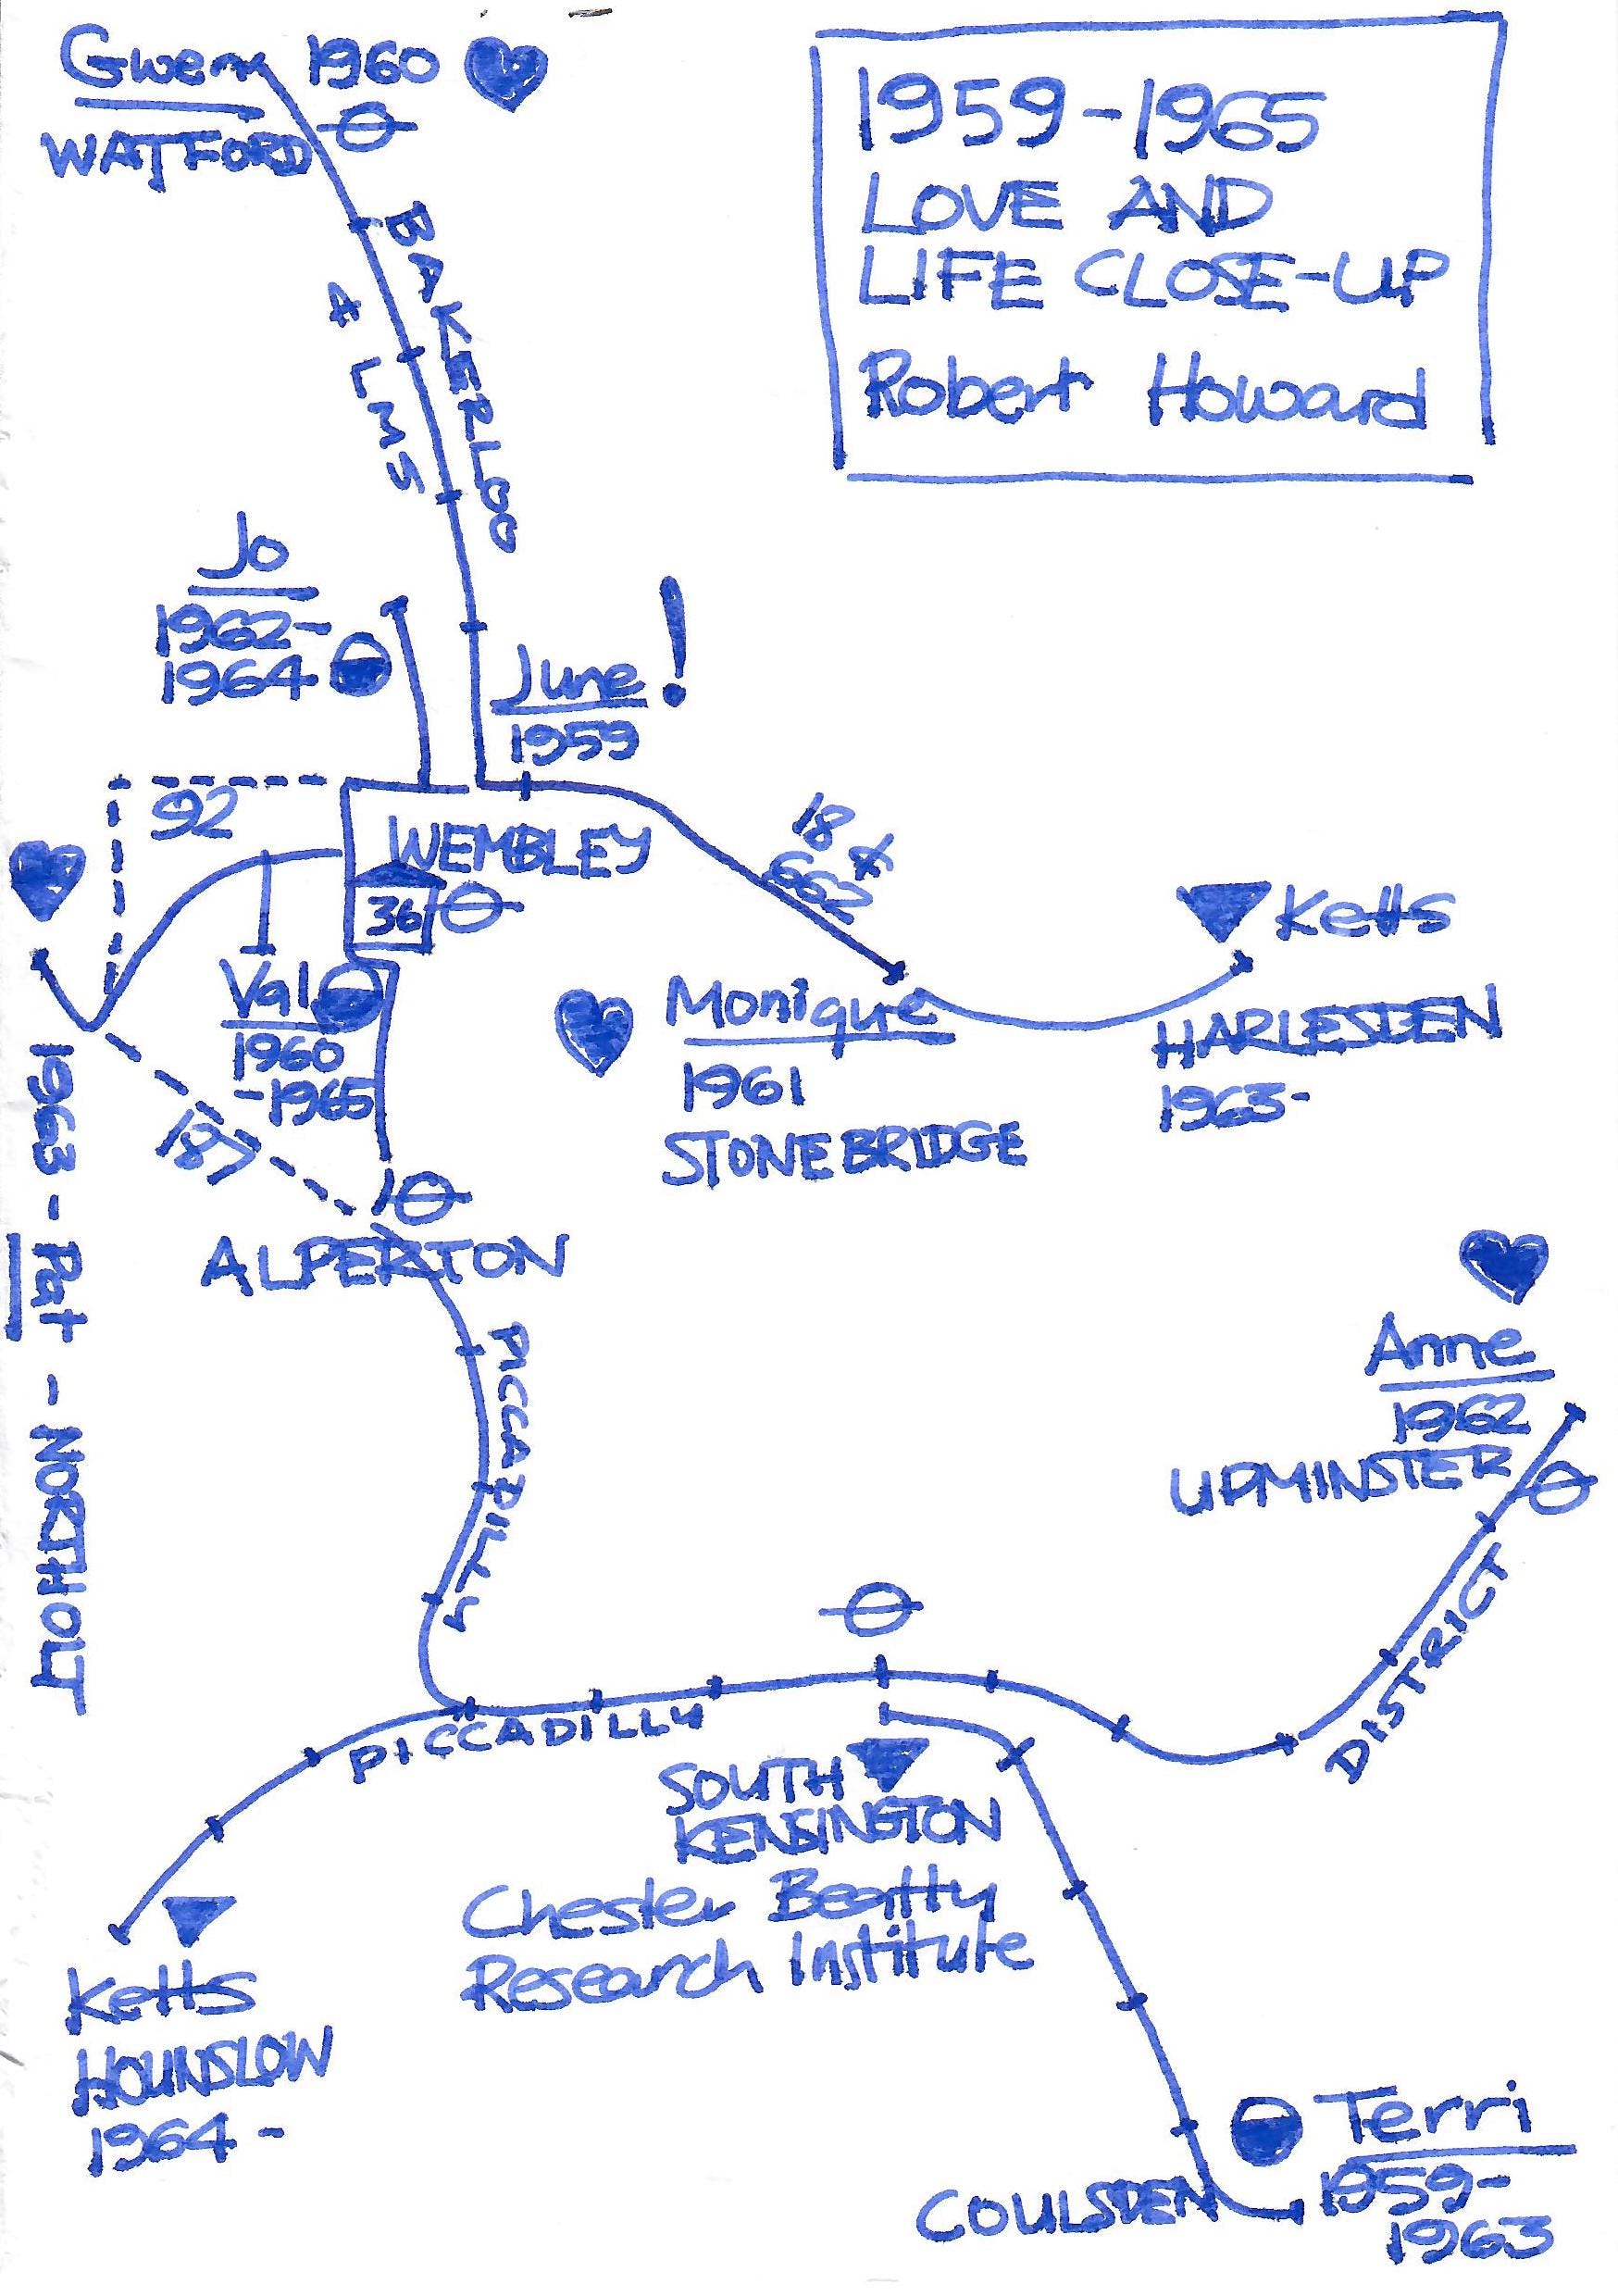 Gwen 1960
WATFORD
1959-1965
LOVE AND
LIFE CLOSE-UP
Robert Howard
BAKERLOO
& LMS
Jo
1962-
1964
June!
1959
92
WEMBLEY
36
18 &
662
Ketts
HARLESDEN
1963-
Val
1960
-1965
Monique
1961
STONEBRIDGE
187
1963 - Pat - NORTHOLT
ALPERTON
PICCADILLY
Anne
1962
UPMINSTER
DISTRICT
PICCADILLY
SOUTH
KENSINGTON
Chester Beatty
Research Institute
Ketts
HOUNSLOW
1964-
Terri
1959-
1963
COULSDEN